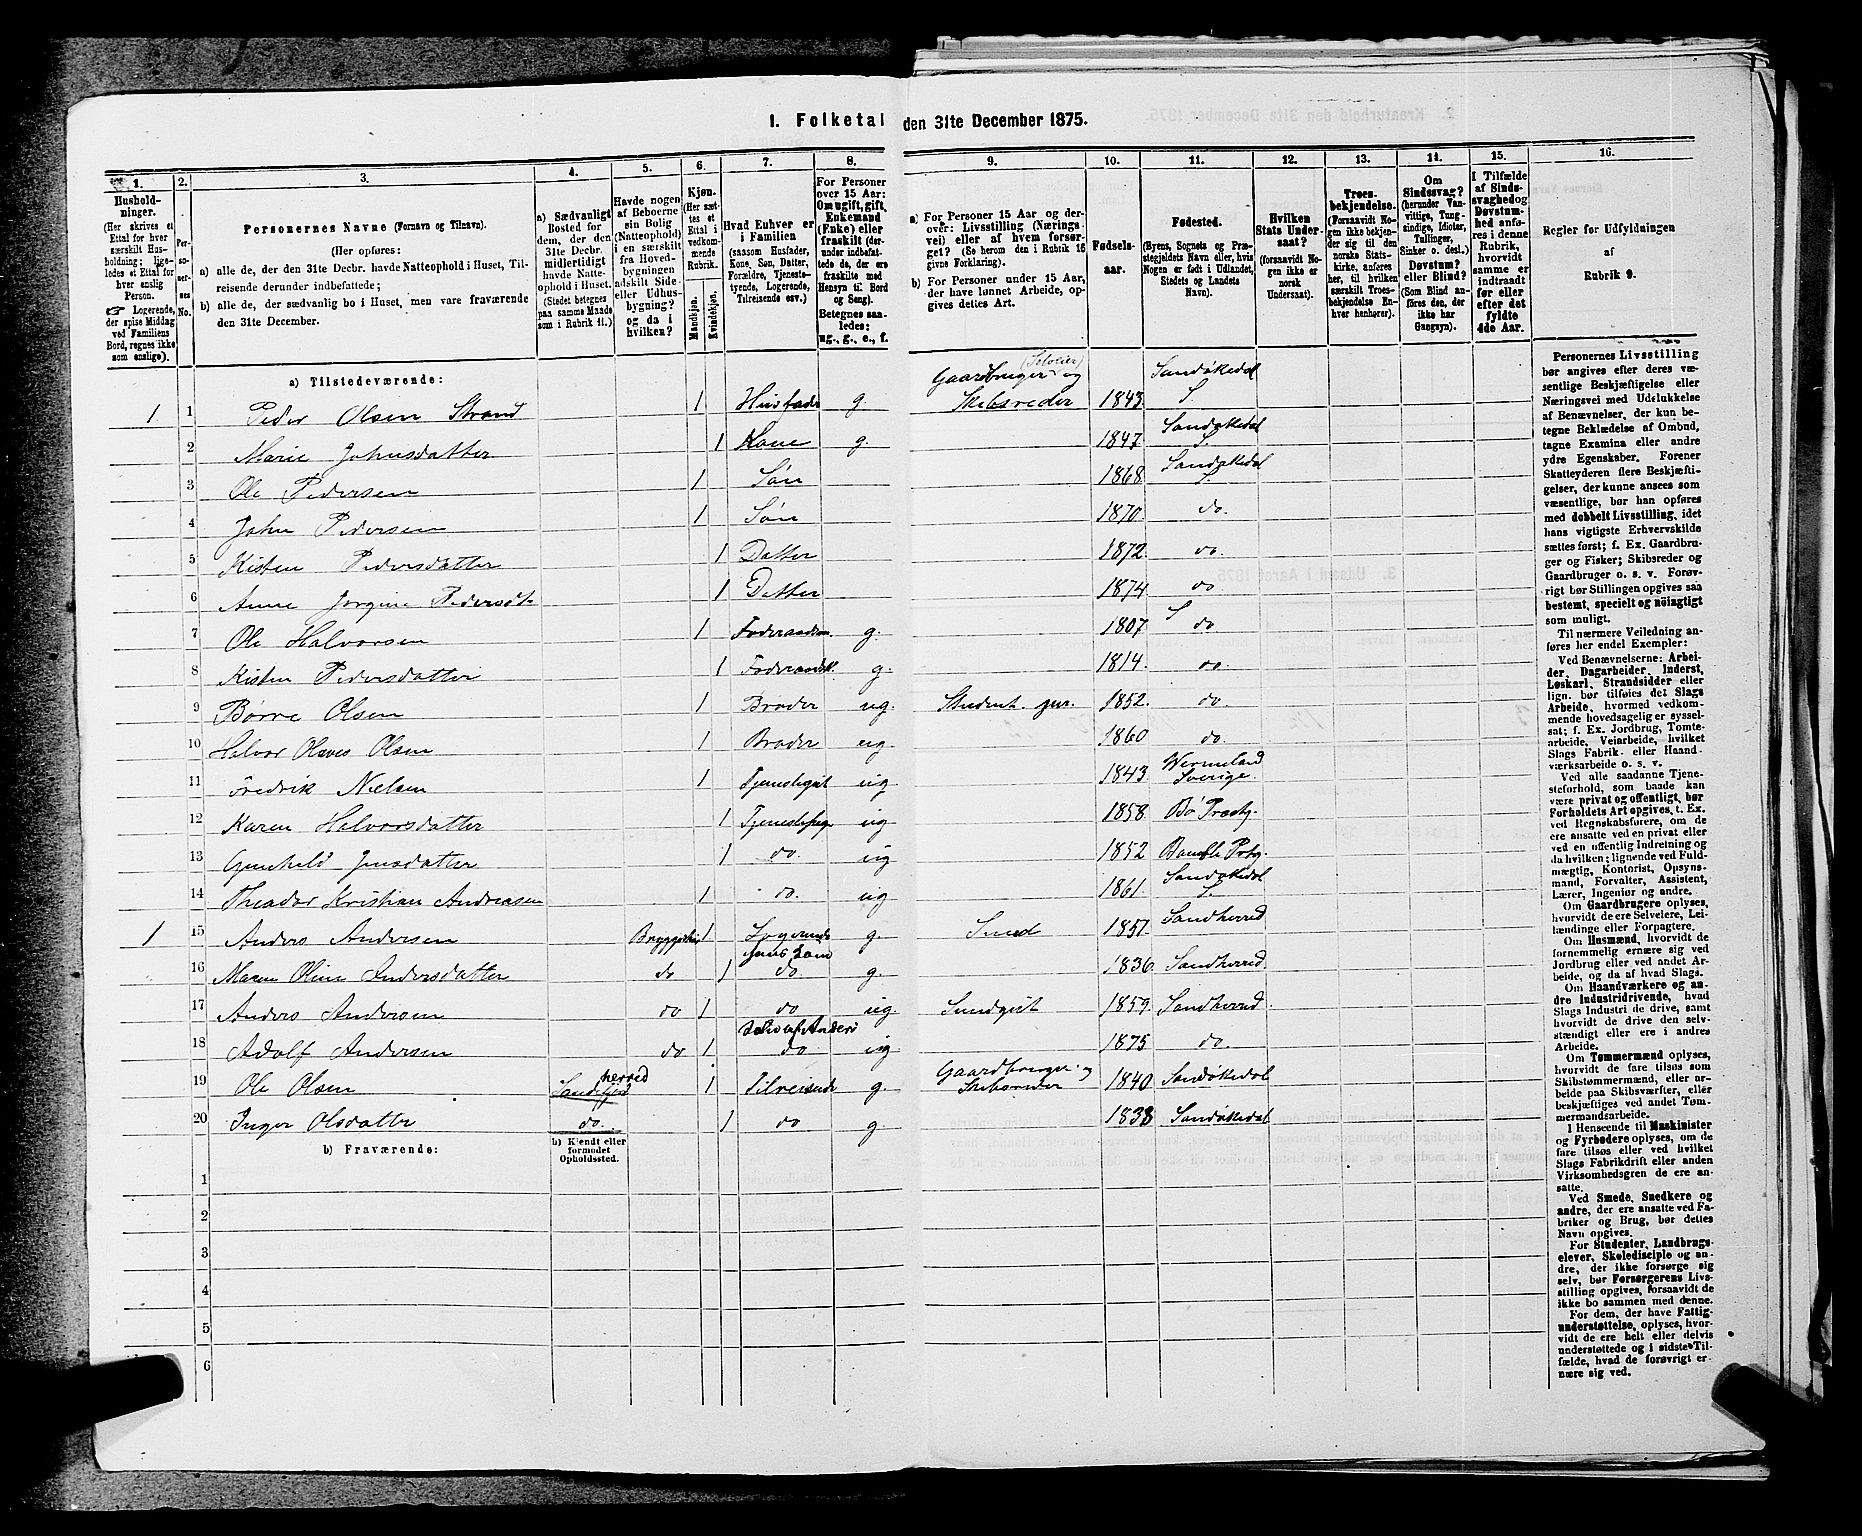 1. Folketal den 31te December 1875.
1. 2. 3. 4. 5. 6. 7. 8. 9. 10. 11. 12. 13. 14. 15. 16.
Husholdninger.
(Her skrives et Ettal for hver særskilt Husholdning; ligeledes et Ettal for hver enslig Person.
☞ Logerende, der spise Middag ved Familiens Bord, regnes ikke som enslige).
Personernes No.
Personernes Navne (Fornavn og Tilnavn).
(Her opføres:
a) alle de, der den 31te Decbr. havde Natteophold i Huset, Tilreisende derunder indbefattede;
b) alle de, der sædvanlig bo i Huset, men vare fraværende den 31te December.
a) Sædvanligt Bosted for dem, der den 31te Decbr. midlertidigt havde Natteophold i Huset. (Stedet betegnes paa samme Maade som i Rubrik 11.)
Havde nogen af Beboerne sin Bolig (Natteophold) i en særskilt fra Hovedbygningen adskilt Side- eller Udhusbygning? og da i hvilken?
Kjøn. (Her sættes et Ettal i vedkommende Rubrik.
Mandkjøn. Kvindekjøn.
Hvad Enhver er i Familien (saasom Husfader, Kone, Søn, Datter, Forældre, Tjenestetyende, Logerende, Tilreisende osv.)
For Personer over 15 Aar: Om ugift, gift, Enkemand (Enke) eller fraskilt (derunder indbefattede de, der ere fraskilte med Hensyn til Bord og Seng). Betegnes saaledes: ug., g., e., f.
a) For Personer 15 Aar og derover: Livsstilling (Næringsvei) eller af hvem forsørget? (Se herom den i Rubrik 16 givne Forklaring).
b) For Personer under 15 Aar, der have lønnet Arbeide, opgives dettes Art.
Fødselsaar.
Fødested.
(Byens, Sognets og Præstegjeldets Navn eller, hvis Nogen er født i Udlandet, Stedets og Landets Navn).
Hvilken Stats Undersaat? (forsaavidt Nogen ikke er norsk Undersaat).
Troesbekjendelse. (Forsaavidt Nogen ikke bekjender sig til den norske Statskirke, anføres her, til hvilken særskilt Troesbekjendelse Enhver henhører).
Om Sindssvag? (herunder Vanvittige, Tungsindige, Idioter, Tullinger, Sinker o. desl.). Døvstum? eller Blind? (Som Blind anføres den, der ikke har Gangsyn).
I Tilfælde af Sindssvaghed og Døvstumhed anføres i denne Rubrik, hvorvidt samme er indtraadt før eller efter det fyldte 4de Aar.
Regler for Udfyldningen af Rubrik 9.
a) Tilstedeværende:
1 1 Peder Olsen Strand 1 Husfader g. Gaardbruger (Selveier) og Skibsreder 1843 Sandøkedal S.
2 Marie Johnsdatter 1 Kone g. 1847 Sandøkedal S.
3 Ole Pedersen 1 Søn 1868 Sandøkedal S.
4 John Pedersen 1 Søn 1870 do.
5 Kisten Pedersdatter 1 Datter 1872 do
6 Anne Jorgine Pedersdt. 1 Datter 1874 do
7 Ole Halvorsen 1 g. 1807 S do
8 Kisten Pedersdatter 1 g. 1814 do
9 Børre Olsen 1 Broder ug. Student. jur. 1852 do.
10 Halvor Olaves Olsen 1 Broder ug. 1860 do.
11 Fredrik Nielsen 1 Tjenestegut ug 1843 Wermeland Sverige.
12 Karen Halvorsdatter 1 Tjenestepige ug 1858 Bø Præstg.
13 Gunhild Jensdatter 1 do. ug 1852 Bamble Prstg.
14 Theador Kristian Andreasen 1 do. ug 1861 Sandøkedal S.
1 15 Anders Andersen Bryggerhus 1 Logerende g. Smed 1851 Sandherred
16 Maren Oline Andersdatter do 1 do. g. 1836 Sandherred.
17 Anders Andersen do 1 do ug. 1859 Sandherred
18 Adolf Andersen do 1 do ug 1875 do.
19 Ole Olsen Sandefjord herred 1 Tilreisende g. Gaardbruger og Skibsreder 1840 Sandøkedal
20 Inger Olsdatter do. 1 do g 1838 Sandøkedal
b) Fraværende:
b) Kjendt eller formodet Opholdssted.
1
2
3
4
5
6
Personernes Livsstilling bør angives efter deres væsentlige Beskjæftigelse eller Næringsvei med Udelukkelse af Benævnelser, der kun betegne Beklædelse af Ombud, tagne Examina eller andre ydre Egenskaber. Forener Skatteyderen flere Beskjæftigelser, der kunne ansees som væsentlige, bør han opføres med dobbelt Livsstilling, idet hans vigtigste Erhvervskilde sættes først; f. Ex. Gaardbruger og Fisker; Skibsreder og Gaardbruger o. s. v. Forøvrigt bør Stillingen opgives saa bestemt, specielt og nøiagtigt som muligt.
Til nærmere Veiledning anføres her endel Exempler:
Ved Benævnelserne: Arbeider, Dagarbeider, Inderst, Løskarl, Strandsidder eller lign. bør tilføies det Slags Arbeide, hvormed vedkommende hovedsagelig er sysselsat; f. Ex. Jordbrug, Tomtearbeide, Veiarbeide, hvilket Slags Fabrik- eller Haandværksarbeide o. s. v.
Ved alle saadanne Tjenesteforhold, som baade kan være privat og offentligt, bør Forholdets Art opgives, t. Ex. ved Regnskabsførere, om de ere ansatte ved en privat eller ved en offentlig Indretning og da hvilken; lignende ved Fuldmægtig, Kontorist, Opsynsmand, Forvalter, Assistent, Lærer, Ingeniør og andre.
Om Gaardbrugere oplyses, hvorvidt de ere Selveiere, Leilændinge eller Forpagtere.
Om Husmænd, hvorvidt de fornemmelig ernære sig ved Jordbrug eller ved andet Arbeide, og da af hvad Slags.
Om Haandværkere og andre Industridrivende, hvad Slags Industri de drive, samt hvorvidt de drive den selvstændigt eller ere i andres Arbeide.
Om Tømmermænd oplyses, hvorvidt de fare tilsøs som Skibstømmermænd, eller arbeide paa Skibsværfter, eller beskjæftiges ved andet Tømmermandsarbeide.
I Henseende til Maskinister og Fyrbødere oplyses, om de fare tilsøs eller ved hvilket Slags Fabrikdrift eller anden Virksomhedsgren de ere ansatte.
Ved Smede, Snedkere og andre, der ere ansatte ved Fabriker og Brug, bør dettes Navn opgives.
For Studenter, Landbrugselever, Skoledisciple og andre, der ikke forsørge sig selv, bør Forsørgerens Livsstilling opgives, forsaavidt de ikke bo sammen med denne.
For dem, der have Fattigunderstøttelse, oplyses, hvorvidt de ere helt eller delvis understøttede og i sidste Tilfælde, hvad de forøvrigt ernære sig ved.